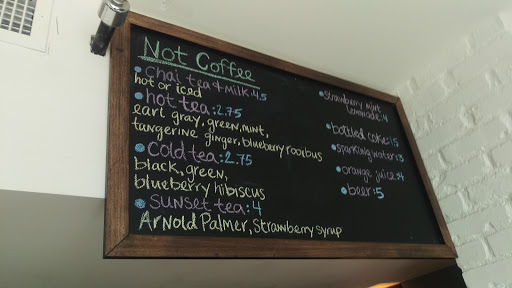 Not Coffee
chai tea + milk: 4.5
hot or iced
hot tea: 2.75
earl gray, green, mint,
tangerine ginger, blueberry rooibus
cold tea: 2.75
black, green,
blueberry hibiscus
sunset tea: 4
Arnold Palmer, Strawberry syrup
strawberry mint
lemonade: 4
bottled coke:
sparkling water:
orange juice:
beer: 5